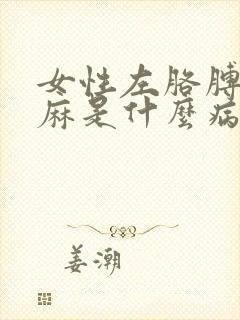 女性左胳膊
麻是什麼病
姜潮